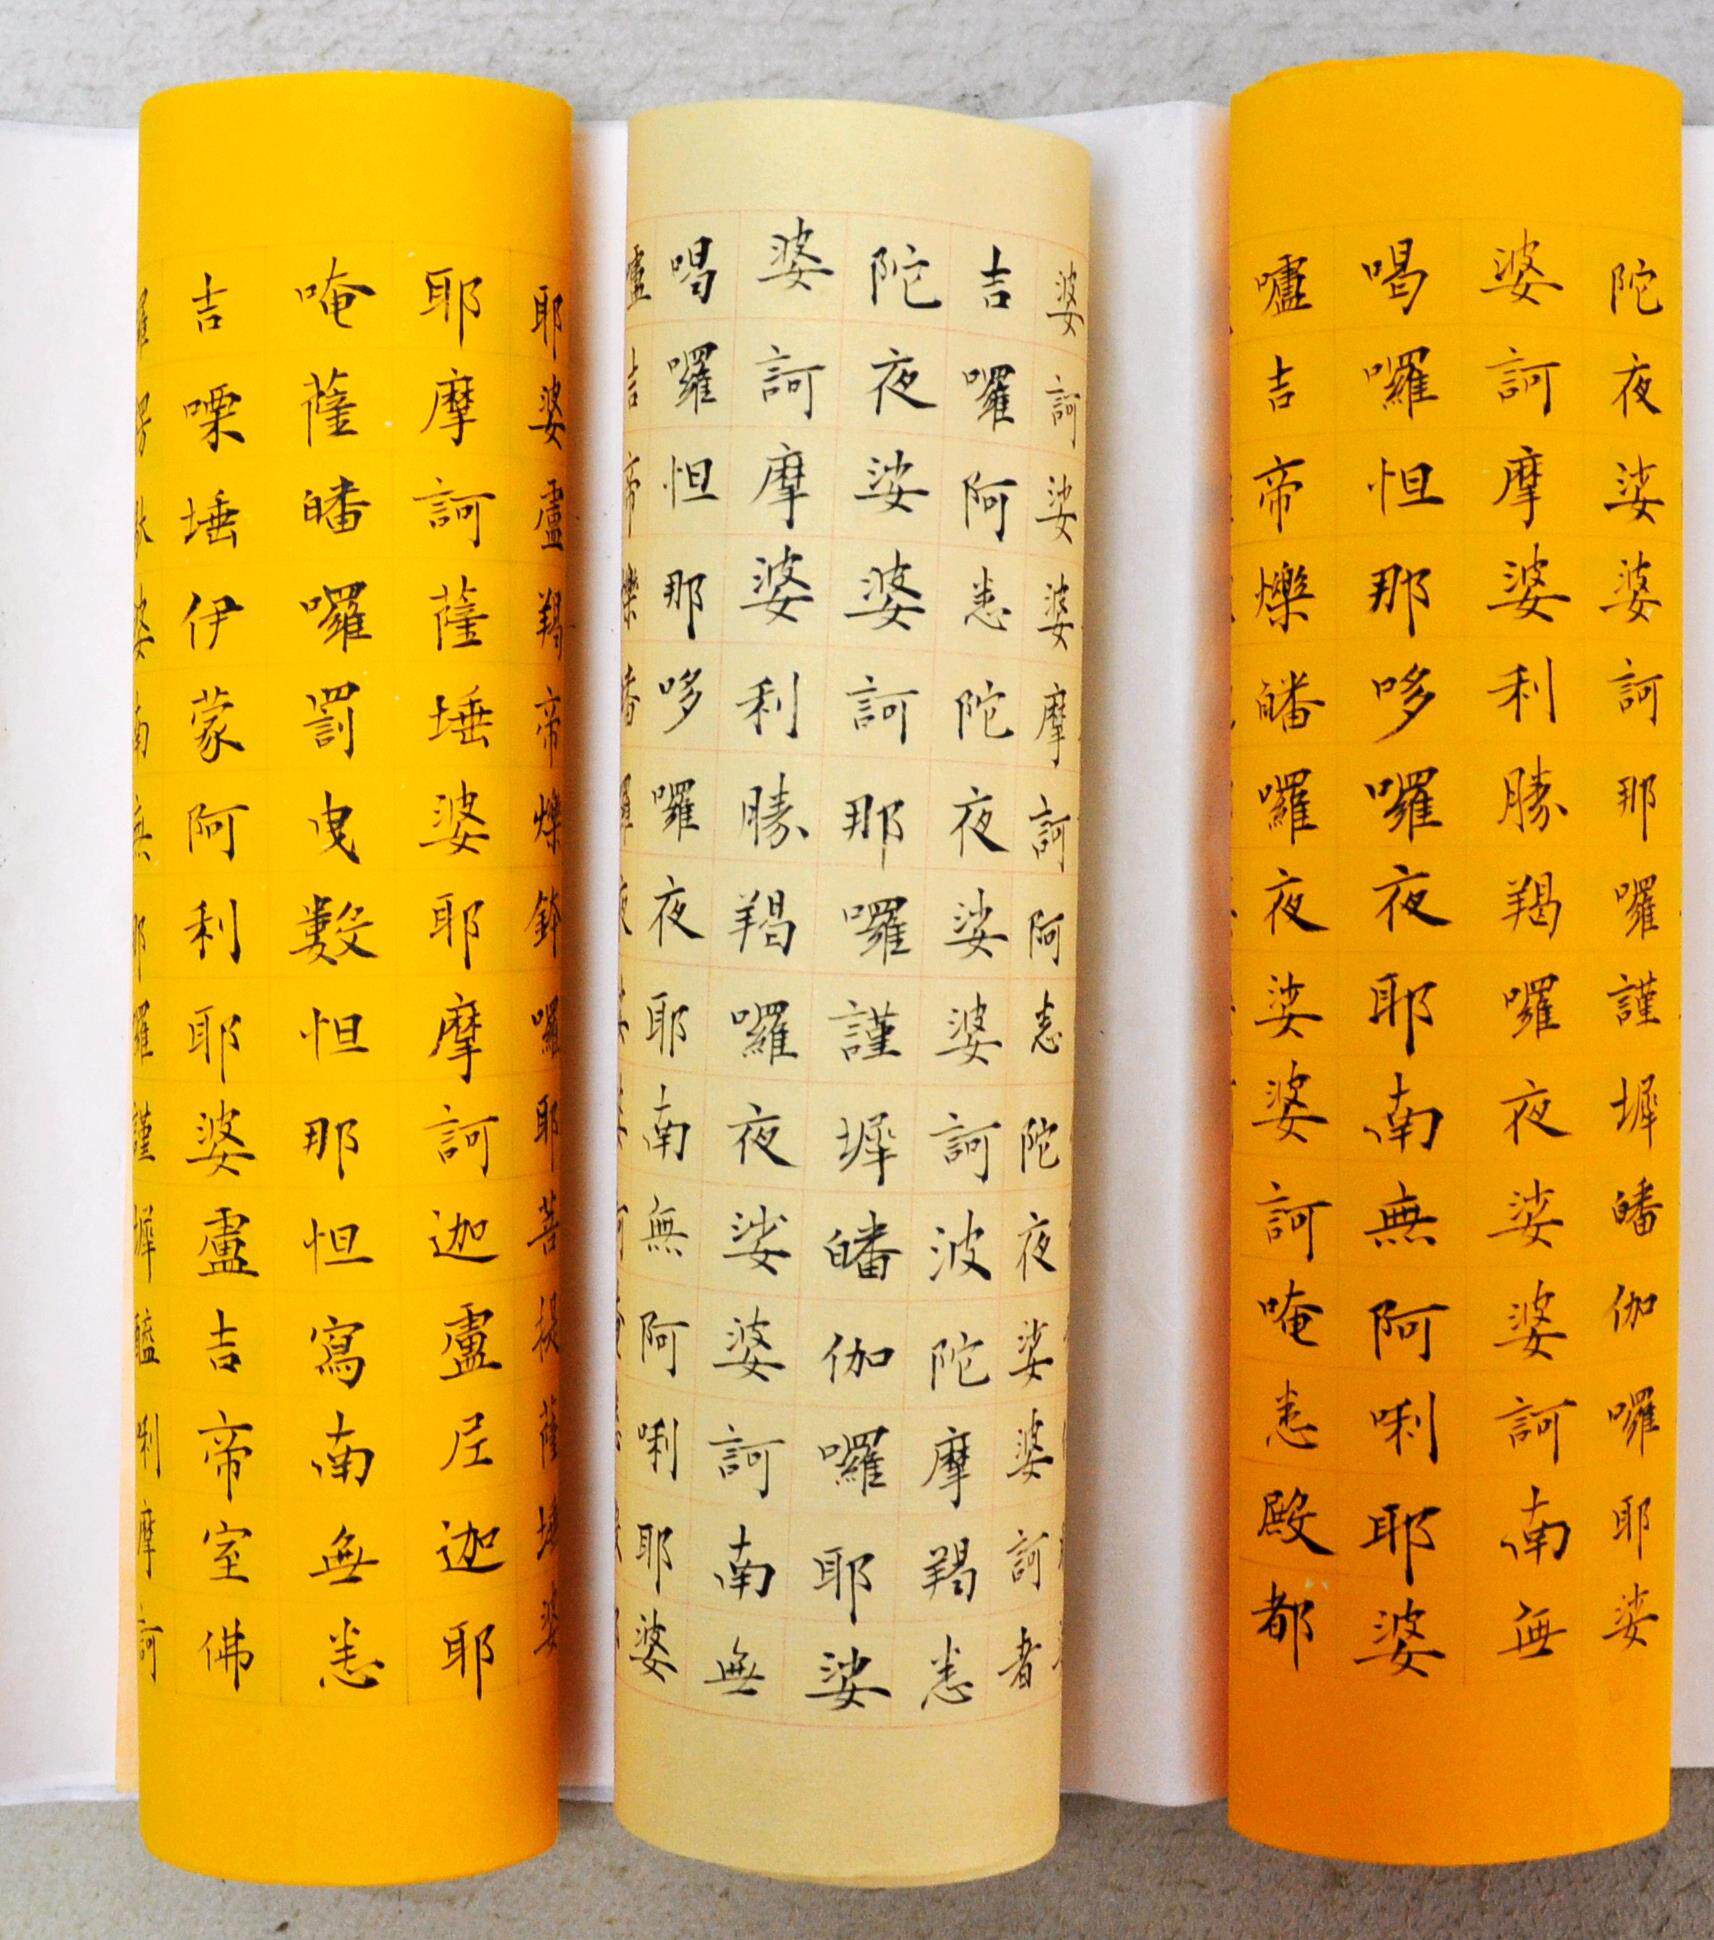 陀夜娑婆訶那囉謹墀皤伽囉耶娑
婆訶摩婆利勝羯囉夜娑婆訶南無
喝囉怛那哆囉夜耶南無阿唎耶婆
嚧吉帝爍皤囉夜娑婆訶唵悉殿都
婆訶娑婆摩訶阿悉陀夜娑婆訶者
吉囉阿悉陀夜娑婆訶波陀摩羯悉
陀夜娑婆訶那囉謹墀皤伽囉耶娑
婆訶摩婆利勝羯囉夜娑婆訶南無
喝囉怛那哆囉夜耶南無阿唎耶婆
嚧吉帝爍皤囉夜
耶婆盧羯帝爍鉢囉耶菩提薩埵婆
耶摩訶薩埵婆耶摩訶迦盧尼迦耶
唵薩皤囉罰曳數怛那怛寫南無悉
吉嘌埵伊蒙阿利耶婆盧吉帝室佛
南無那囉謹墀醯唎摩訶